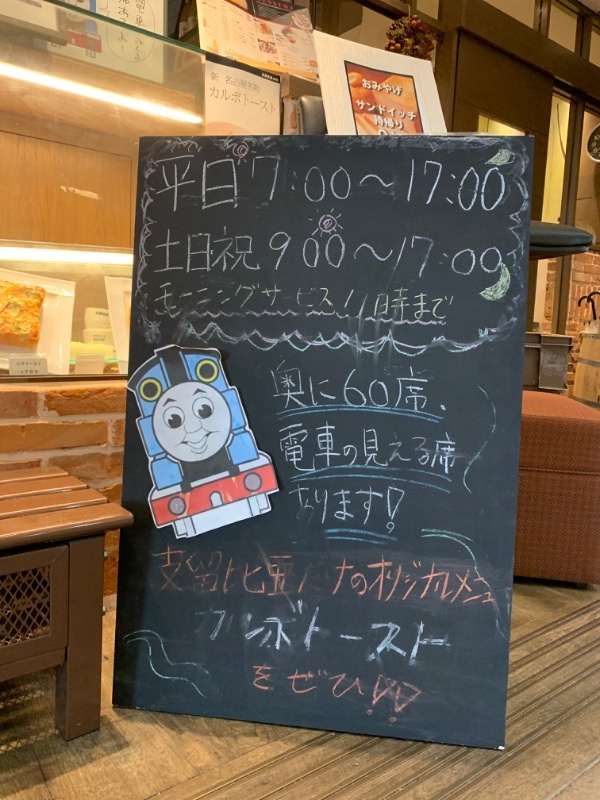 新 名古屋名物
カルボトースト
おみやげ
サンドイッチ
持帰り
平日 7:00〜17:00
土日祝 9:00〜17:00
モーニングサービス 11時まで
奥に60席、
電車の見える席
あります!
支留比亜 のオリジナルメニュー
カルボトースト
をぜひ!!
ピザトースト